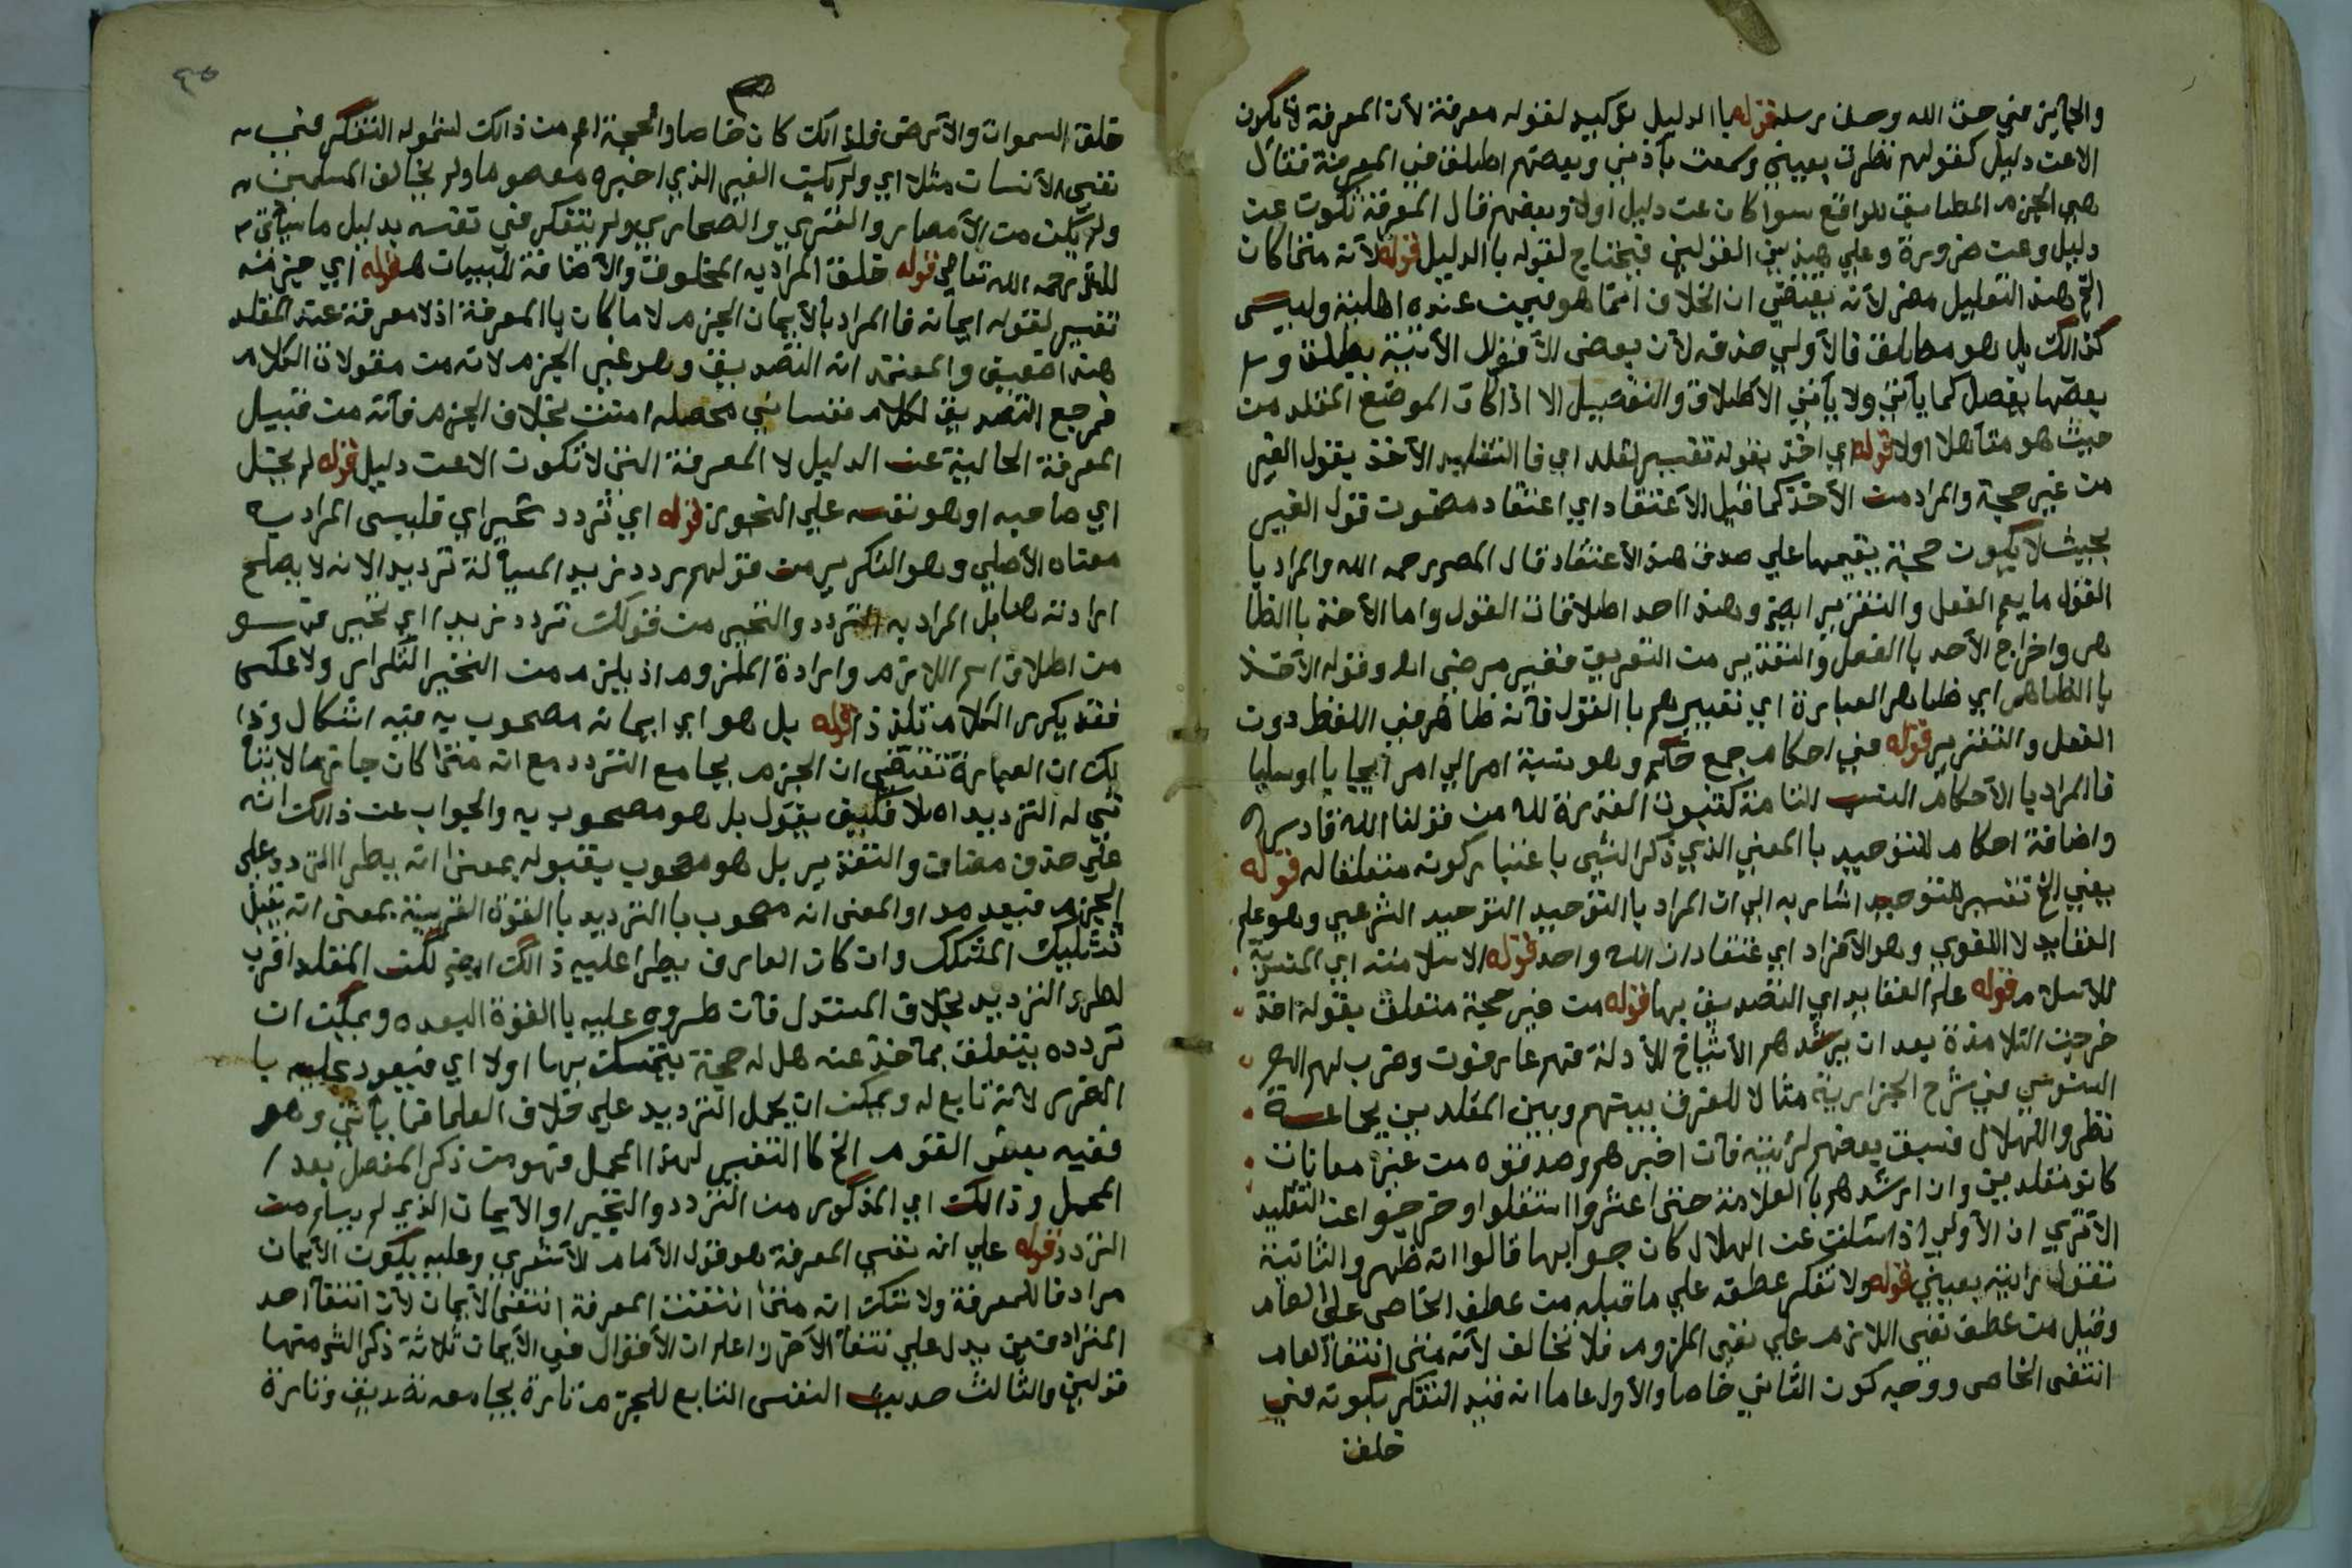 والجائز في حق الله وحق رسله قوله بالدليل توكيد لقوله معرفة لأن المعرفة لا تكون
الا عن دليل كقولهم نظرت بعيني وسمعت بأذني وبعضهم اطلق في المعرفة فقال
هي الجزم المطابق للواقع سوا كان عن دليل اولا وبعضهم قال المعرفة تكون عن
دليل وعن ضرورة وعلي هذين القولين فيحتاج لقوله باالدليل قوله لأنه متى كان
الخ هذا التعليل مضر لأنه يقتضي ان الخلاف انما هو فيمن عنده اهلية وليس
كذالك بل هو مطلق فالأولي حذفه لأن بعض الأقوال الأتية يطلق و
بعضها يفصل كما يأتي ولا يأتي الاطلاق والتفصيل الا اذا كان الموضع المقلد من
حيث هو متأهلا اولا قوله اي اخذ بقوله تفسير لقلد اي فا التقليد الأخذ بقول الغير
من غير حجة والمراد من الأخذ كما قيل الأعتقاد اي اعتقاد مضمون قول الغير
بحيث لا يكون حجة يقيمها علي صدق هذا الأعتقاد قال المص رحمه الله والمراد با
القول ما يعم الفعل والتقرير ايضا وهذا احد اطلاقات القول واما الأخذ باالظا
هر واخراج الأخذ باالفعل والتقرير من التعريف فغير مرضي اه وقوله الأخذ
باالظاهر اي ظاهر العبارة اي تعبيرهم باالقول فأنه ظاهر في اللفظ دون
الفعل والتقرير قوله في احكام جمع حكم وهو نسبة امر الي امر ايجابا او سلبا
فاالمراد باالأحكام النسب التامة كثبوت القدرة لله من قولنا الله قادر
واضافة احكام للتوحيد باالمعني الذي ذكر الشي باعتبار كونه متعلقا له قوله
يعني الخ تفسير للتوحيد اشار به الي ان المراد باالتوحيد التوحيد الشرعي وهو علم
العقايد لا اللغوي وهو الأفراد اي عتقاد ان الله واحد قوله الاسلامية اي المنسوبة
للاسلام قوله علم العقايد اي التصديق بها قوله من غير حجة متعلق بقوله اخذ
خرجت التلامذة بعد ان يرشدهم الأشياخ للأدلة فهم عارفون وضرب لهم
السنوسي في شرح الجزايرية مثالا للفرق بينهم وبين المقلدين بجاعة
نظروا للهلال فسبق بعضهم لرئيته فأن اخبرهم وصدقوه من غير معاناة
كانو مقلدين وان ارشدهم باالعلامة حتى اعثروا استقلوا وخرجوا عن التقليد
الأ تري ان الأولي اذا سئلت عن الهلال كان جوابها قالوا انه ظهر والثانية
تقول رأيته بعيني قوله ولا تفكر عطفه علي ما قبله من عطف الخاص على العام
وقيل من عطف نفي اللازم علي نفي الملزوم فلا تخالف لأنه متى انتفا العام
انتفى الخاص ووجه كون الثاني خاصا والأول عاما انه قيد التفكر بكونه في
خلق
٣
٤٥
خلق السموات والأرض فلذالك كان خاصا والحجة اعم من ذالك لشموله التفكر في
نفس الأنسان مثلا اي ولم يكن الغير الذي اخبره معصوما ولم يخالف المسلمين
ولم يكن من الأمصار والقري والصحاري ولم يتفكر في نفسه بدليل ما سيأتي
للمص رحمه الله تعالي قوله خلق المراد به المخلوق والأضافة للبيان قوله اي جزمه
تفسير لقوله ايمانه فا المراد بالأيمان الجزم لا ما كان باالمعرفة اذ لا معرفة عند المقلد
هذا ضعيف والمعتمد انه التصديق وهو غير الجزم لانه من مقولات الكلام
فمرجع التصديق لكلام نفساني محصله امنت بخلاف الجزم فأنه من قبيل
المعرفة الخالية عن الدليل لا المعرفة التي لا تكون الا عن دليل قوله لم يخل
اي صاحبه او هو نفسه علي التجوز قوله اي تردد تحير اي فليس المراد به
معناه الأصلي وهو التكرير من قولهم ردد زيد المسألة ترديدا لانه لا يصلح
ارادته هنا بل المراد به التردد والتحير من قولك تردد زيد اي تحير فهو
من اطلاق اسم اللازم وارادة الملزوم اذ يلزم من التحير التكرار ولا عكس
فقد يكرر الكلام تلذذا قوله بل هو اي ايمانه مصحوب به فيه اشكال وذا
لك ان العبارة تقتضي ان الجزم يجامع التردد مع انه متى كان جازما لا يتأ
تي له الترديد اصلا فكيف يقول بل هو مصحوب به والجواب عن ذالك انه
علي حذف مضاف والتقدير بل هو مصحوب بقبوله بمعنى انه يطرا التردد علي
الجزم فيعدمه او المعنى انه مصحوب باالترديد باالقوة القريبة بمعنى انه يقبل
تشكيك المشكك وان كان العارف يطرا عليه ذالك ايضا لكن المقلد اقرب
لطرو الترديد بخلاف المستدل فأن طروه عليه باالقوة البعيده ويمكن ان
تردده يتعلق بمأخذ عنه هل له حجة يتمسك بها اولا اي فيعود عليه با
الضرر لأنه تابع له ويمكن ان يحمل الترديد علي خلاف العلما فيما يأتي وهو
ففيه بعض القوم الخ كا التفسير لهذا المجمل فهو من ذكر المفصل بعد
المجمل وذالك اي المذكور من التردد والتحير او الأيمان الذي لم يسلم من
التردد قوله علي انه نفس المعرفة هو قول الأمام الأشعري وعليه يكون الأيمان
مرادفا للمعرفة ولا شك انه متى انتفت المعرفة انتفى الأيمان لأن انتفا احد
المترادفين يدل علي نتفا الأخر واعلم ان الأقوال في الأيمان ثلاثة ذكر الشم منها
قولين والثالث حديث النفس التابع للجزم فتارة يجامعه تصديق وتارة